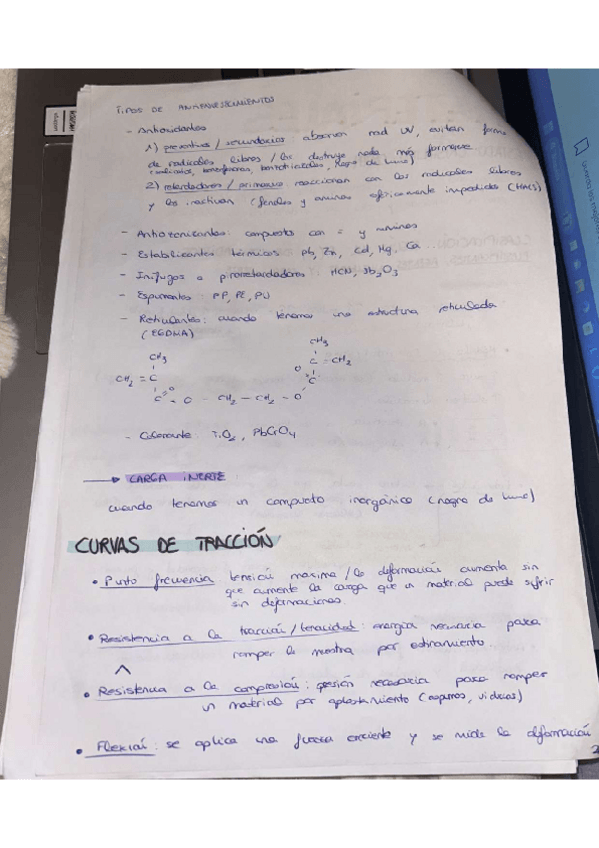 TIPOS DE ANTIENVEJECIMIENTOS
- Antioxidantes
1) preventivos / secundarios: absorven rad UV, evitan forme
de radicales libres / los destruye nada más formarse
(salicilatos, benzofenonas, benzotriazoles, negro de humo)
2) retardadores / primarios reaccionan con los radicales libres
y los inactivan (fenoles y aminas estéricamente impedidas (HALS)
- Antiozonizantes: compuestos con = y aminas
- Estabilizantes térmicos Pb, Zn, Cd, Hg, Ca
- Inífugos o pirorretardadores HCN, Sb2O3
- Espumantes PP, PE, PU
- Reticulantes: cuando tenemos una estructura reticulada
(EGDMA)
CH3 CH3
CH2 = C C = CH2
C = O - O - CH2 - CH2 - O C O
- Colorante: TiO2, PbCrO4
→ CARGA INERTE
cuando tenemos un compuesto inorgánico (negro de humo)
CURVAS DE TRACCIÓN
• Punto frecuencia tensión maxima / la deformación aumenta sin
que aumente la carga que un material puede sufrir
sin deformaciones.
• Resistencia a la tracción / tenacidad: energía necesaria para
romper la muestra por estiramiento.
• Resistencia a la compresión: presión necesaria para romper
un material por aplastamiento (ceramos, vidrios)
• Flexión: se aplica una fuerza creciente y se mide la deformación
2